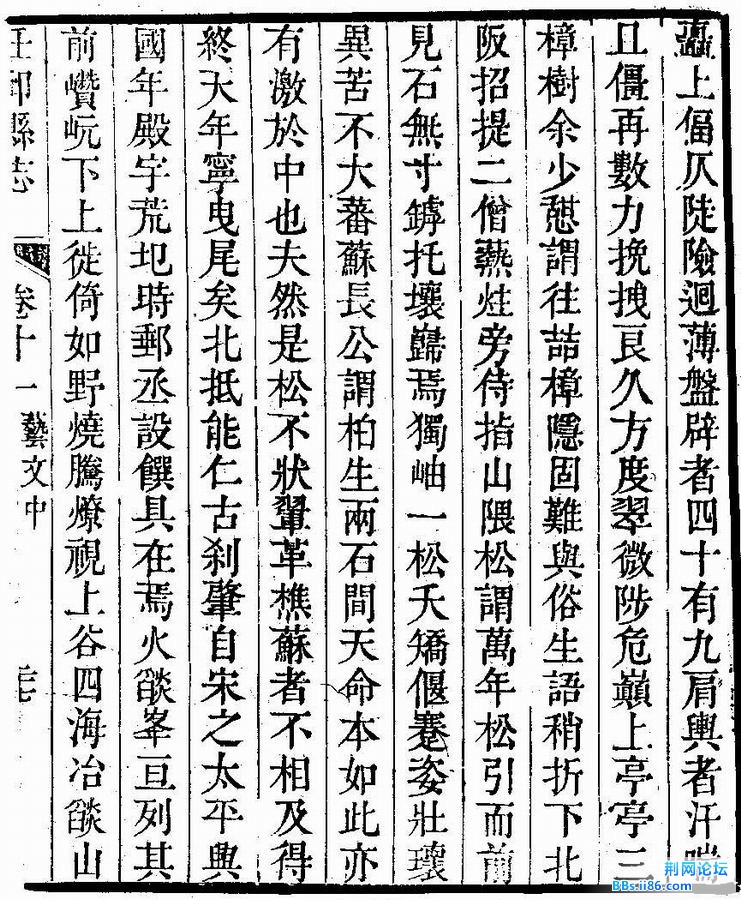 矗上偪仄陡險迴薄盤辟者四十有九肩輿者汗喘
且僵再數力挽拽良久方度翠微陟危巔上亭亭三
樟樹余少憇謂往喆樟隱固難與俗生語稍折下北
阪招提二僧爇炷旁侍指山隈松謂萬年松引而前
見石無寸罅托壤歸焉獨岫一松夭矯偃蹇姿壯瓌
異苦不大蕃蘇長公謂柏生兩石間天命本如此亦
有激於中也夫然是松不狀鞏革樵蘇者不相及得
終天年寧曳尾矣北抵能仁古刹肇自宋之太平興
國年殿宇荒圯時郵丞設饌具在焉火燄峯亘列其
前巑岏下上徙倚如野燒騰燎視上谷四海冶燄山
任邱縣志
卷十一
藝文中
荆网论坛
BBs.ii86.com